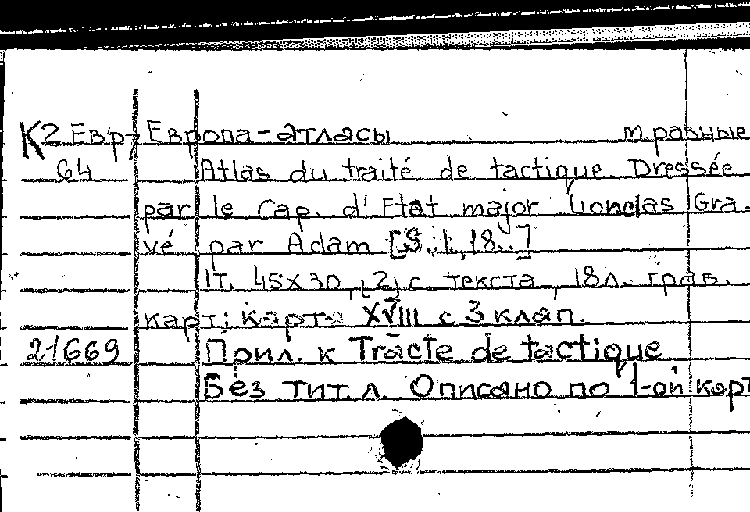 К2 Евр Европа-атласы м.разные
64 Atlas du traité de tactique. Dressée
par le Cap. d'Etat major Gra-
vé par Adam [S.l., 18..]
1т. 45х30, [2] с текста, 18л. грав.
карт; карта XVIII с 3 клап.
21669 Прил. к Tracte de tactique
Без тит. л. Описано по 1-ой карт